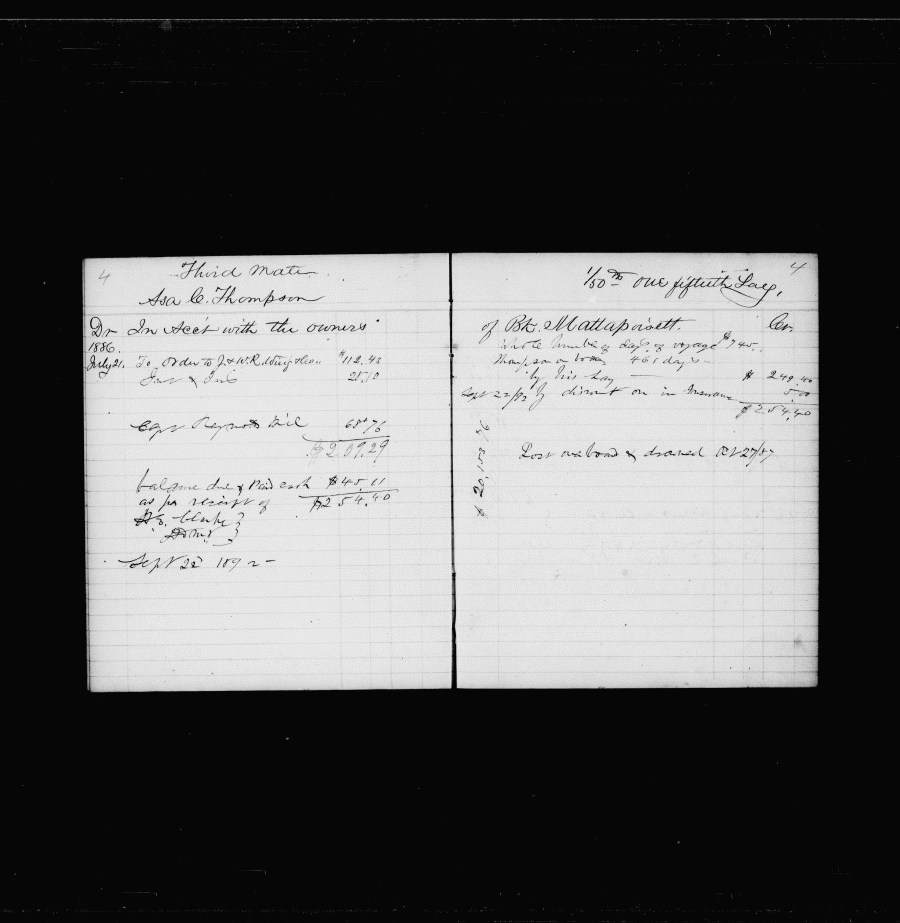 4
Third Mate
Asa C. Thompson
Dr In Acc't with the owners
1886.
July 21. To Order to J. & W. R. Wing & Co $112.43
28.10
Capt Bill 68.76
$209.29
balance due & Paid cash $45.11
as per receipt of $254.40
Sept 22 1892
4
1/50th one fiftieth Lay,
of Bk. Mattapoisett. Cr.
Whole number of days of voyage 745.
Thompson on board 461 days
by his Lay $ 249.40
Sept 22/92 By discount on in Insurance 5.00
$254.40
Lost overboard & drowned Oct 27/87